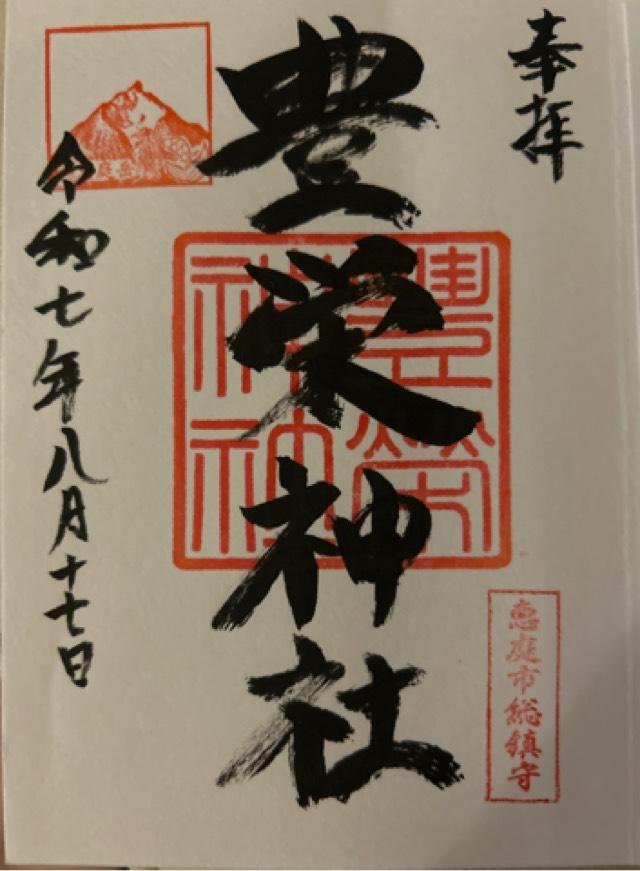 奉拝
恵庭市総鎮守
豊栄神社
豊榮
神社
令和七年八月十七日